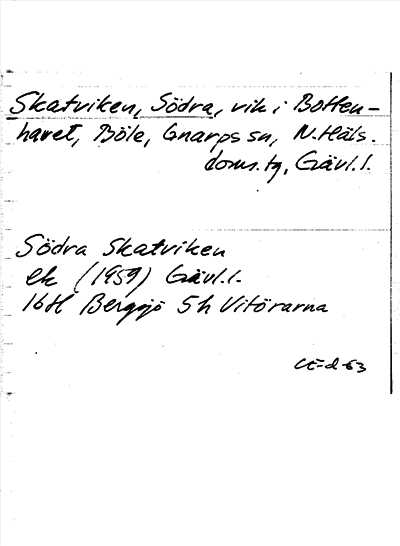 Skatviken, Södra, vik i Botten-
havet, Böle, Gnarps sn, N. Häls.
doms.tg, Gävl.l.
Södra Skatviken
ek (1959) Gävl.l.
16H Bergsjö 5h Vitörarna